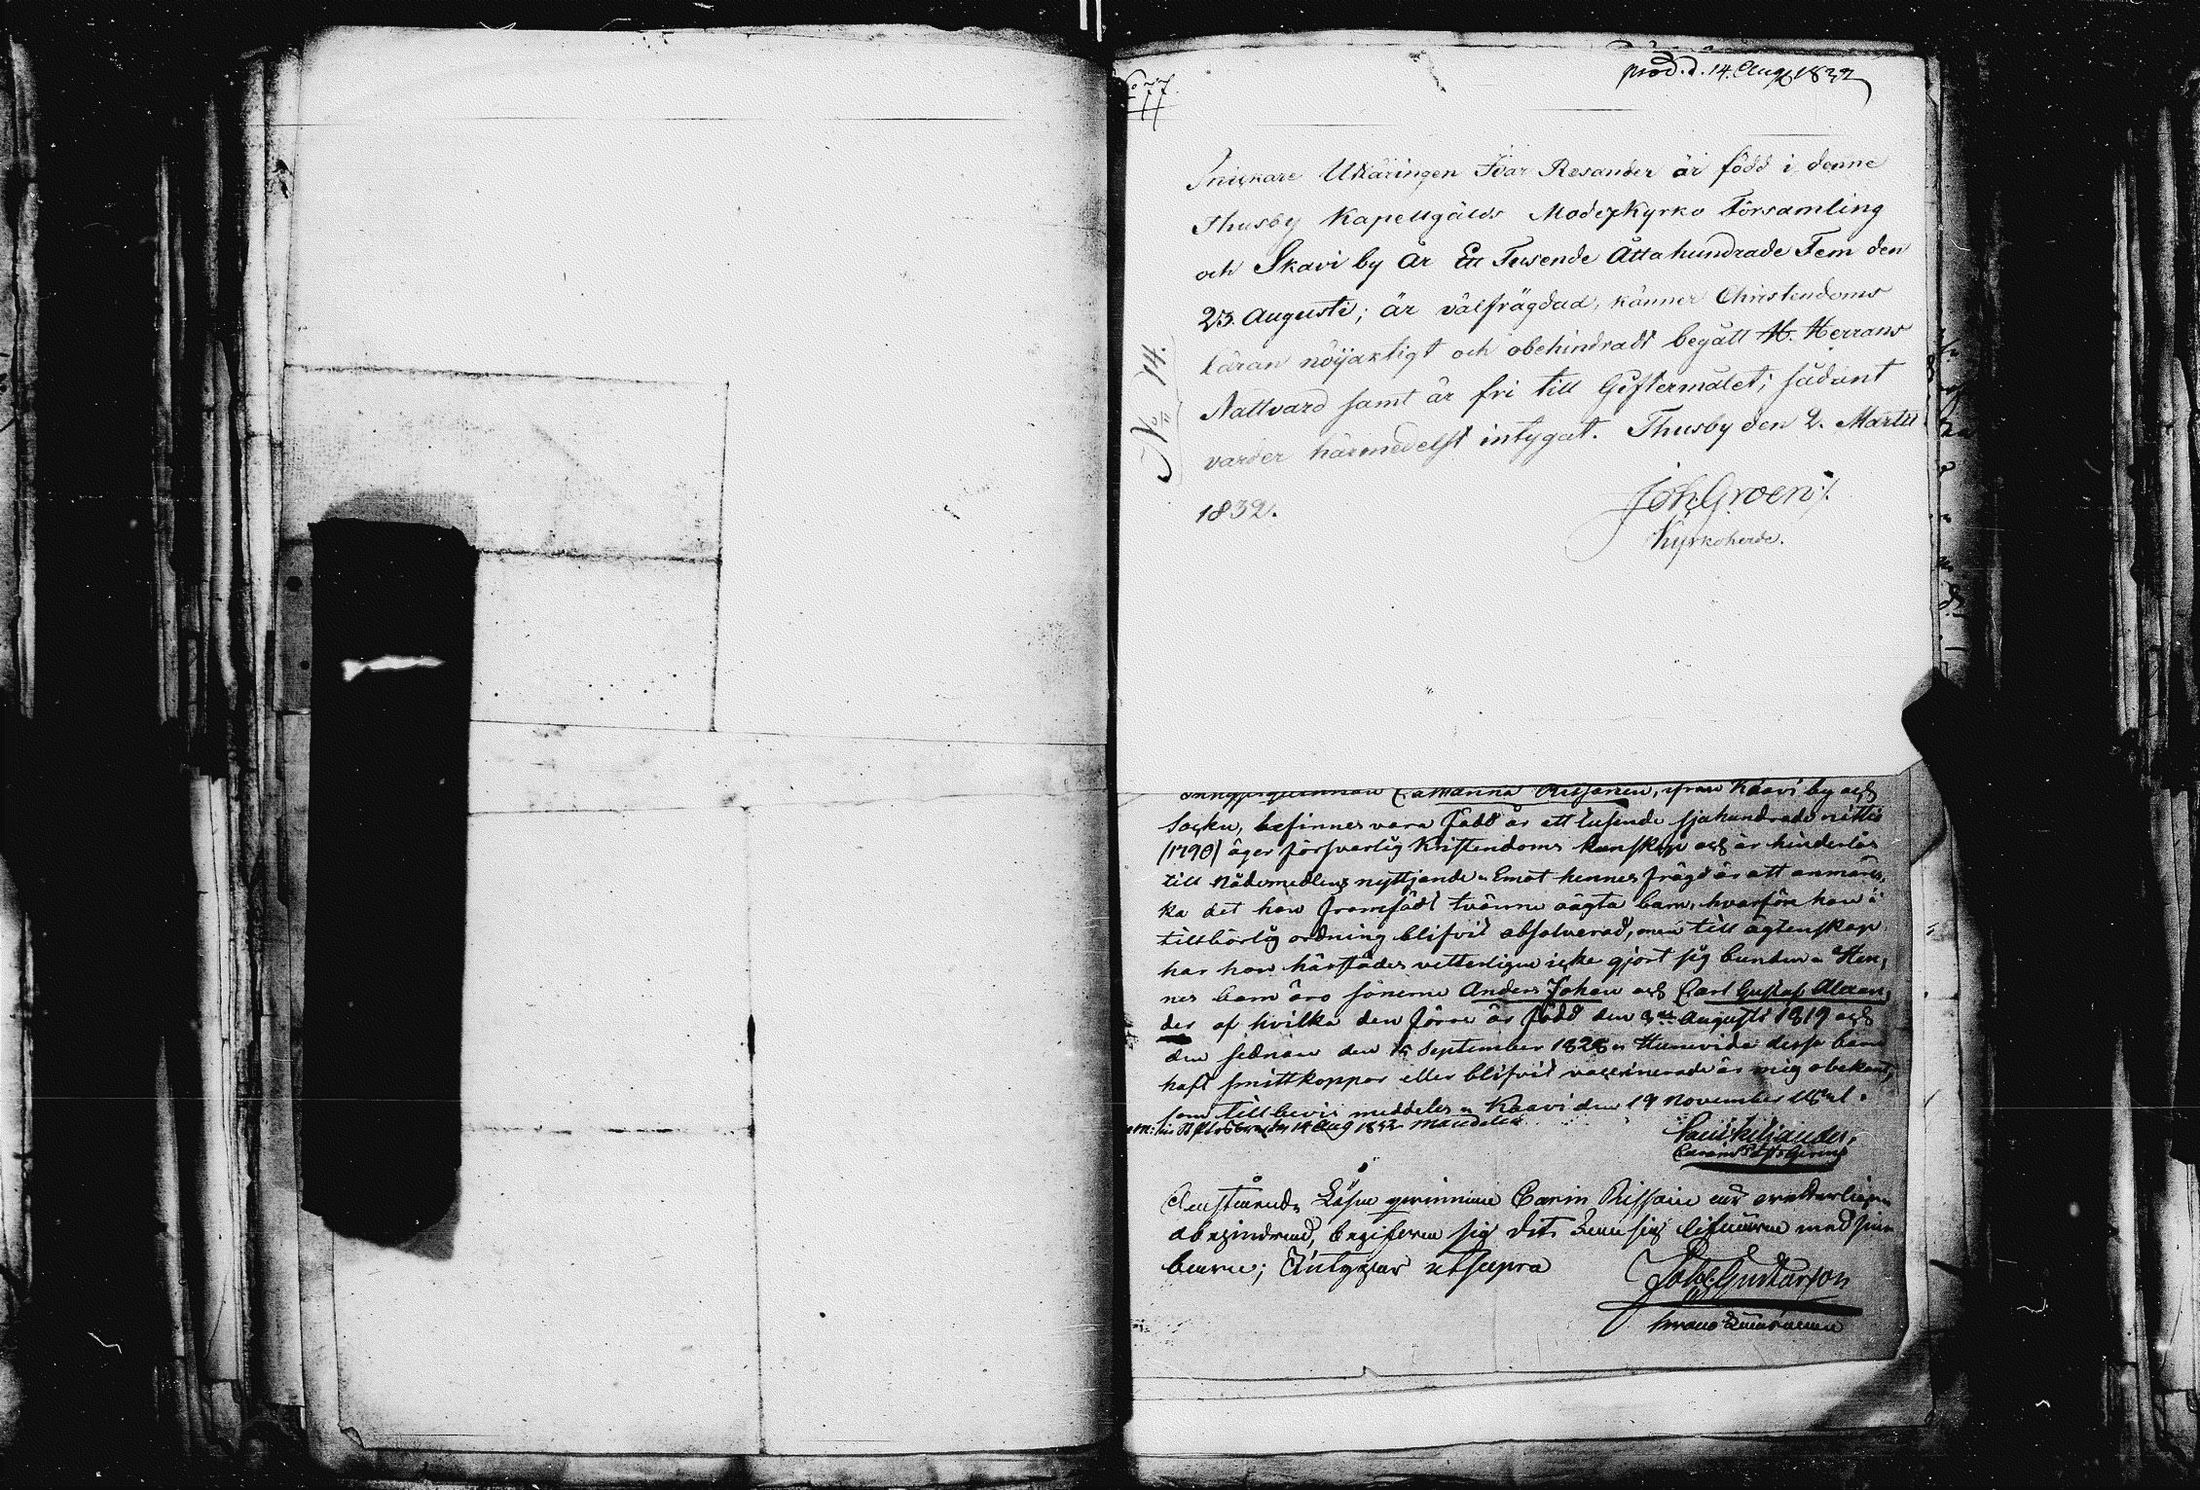 prod. d. 14. Aug 1832
77.
Snickare Utläringen Ivar Resander är född i denne
Thusby Kapellgälds Moderkyrko Församling
och Skavi by År Ett Tusende Åtta hundrade Fem den
23. Augusti; är välfrägdad, känner Christendoms
Läran nöijaktigt och obehindradt begått H. Herrans
No 14.
Nattvard samt är fri till Giftermålet; sådant
varder härmedelst intygat. Thusby den 2. Martii
1832.
Joh: Groen
Kyrkoherde.
Catharina Rissanen, ifrån Kaavi by och
Socken, befinnes vara född år ett tusende sjuhundrade nittio
(1790) äger försvarlig Kristendoms kunskap och är hinderlös
till Nådemedlens nyttjande. Emot hennes frägd är att anmär-
ka det hon framfödt tvänne oägta barn, hvarför hon i
tillbörlig ordning blifvit absolverad, men till ägtenskap
har hon härstädes vetterligen icke gjort sig bunden. Hen-
nes barn äro sönerne Anders Johan och Carl Gustaf Alexan-
der af hvilka den förre är född den 3 Augusti 1819 och
den sednare den 15 September 1828. Huruvida dessa barn
haft smittkoppor eller blifvit vaccinerade är mig obekant,
som till bevis meddeles. Kaavi den 19 November
14 Aug 1832
Carin Rissain
obehindrad, begifva sig med sina
barn; Intygar ut supra
Joh: Gustavson